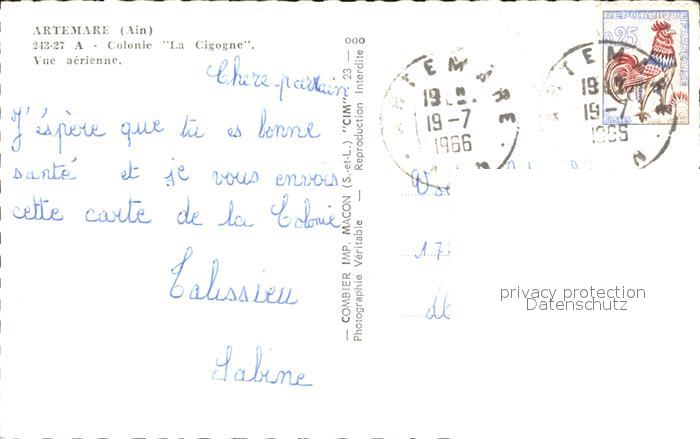 ARTEMARE (Ain)
243-27 A - Colonie "La Cigogne".
Vue aérienne.
Chere parrain
J'éspère que tu es bonne
santé et je vous envois
cette carte de la Colonie
Talissieu
Sabine
— COMBIER IMP. MACON (S.-et-L.) "CIM" 23 — ooo
Photographie Véritable — Reproduction Interdite
ARTEMARE
19
19-7
1966
AIN
REPUBLIQUE FRANÇAISE
0,25
POSTES
ARTEM
19
19-7
N
17
privacy protection
Datenschutz